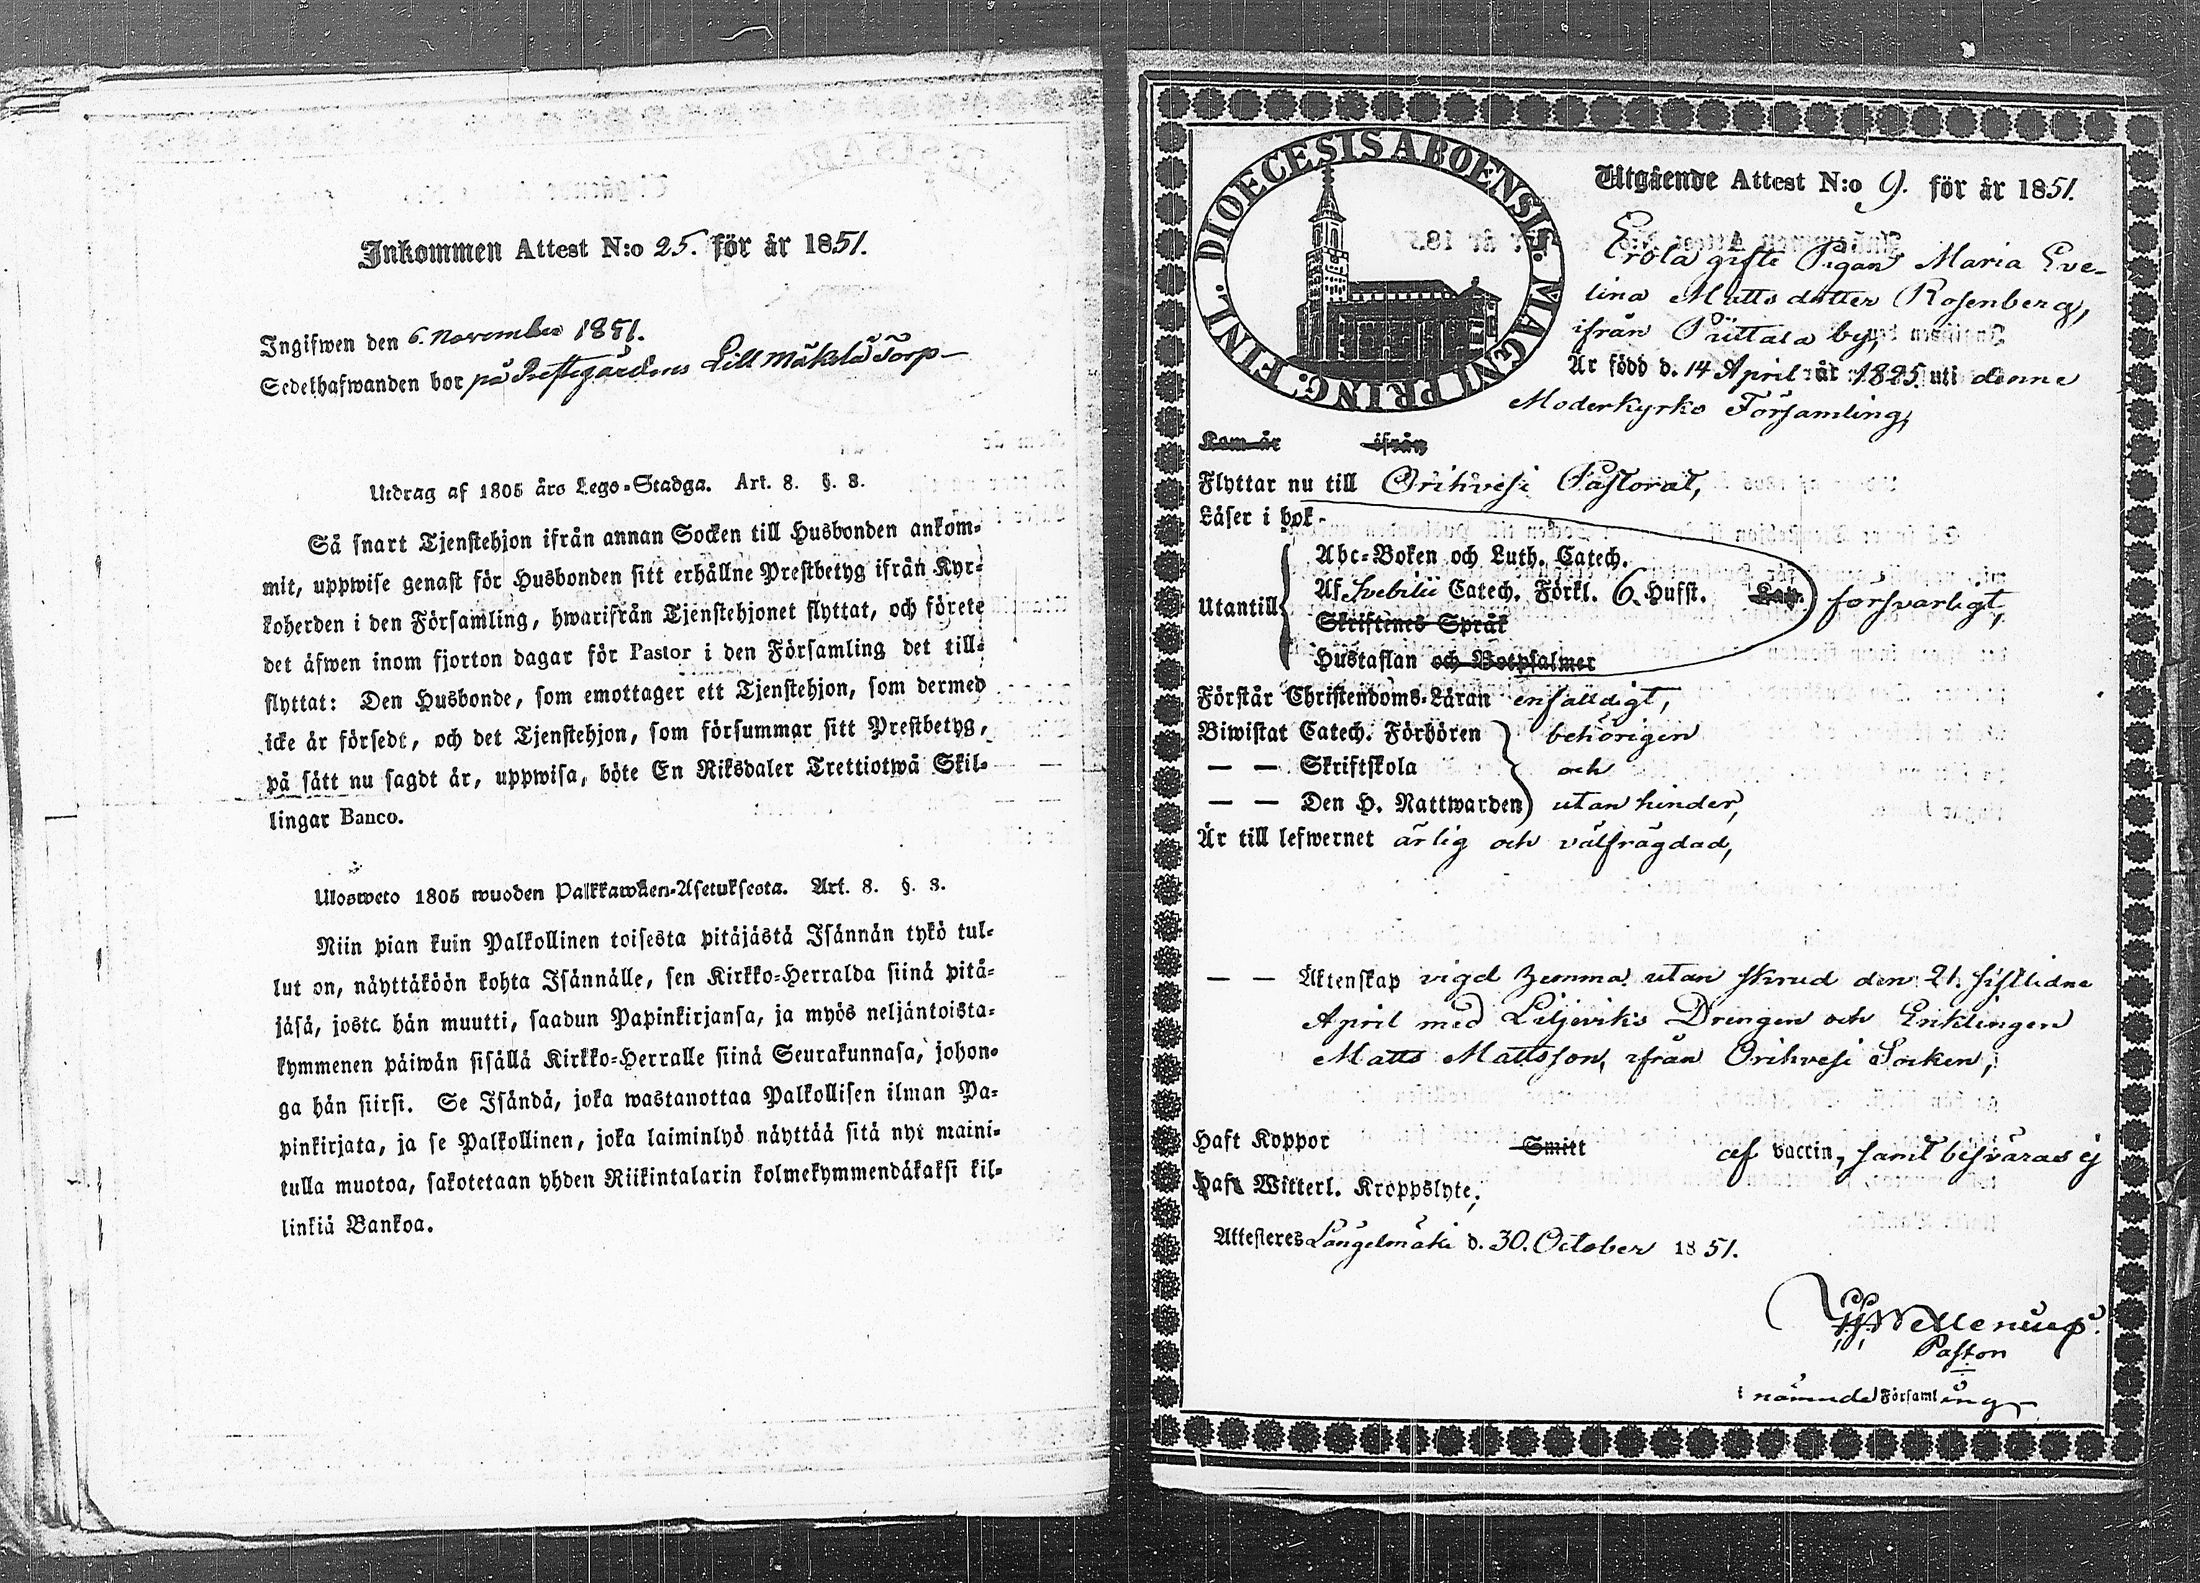 Inkommen Attest N:o 25. för år 1851.
Ingifwen den 6. November 1851.
Sedelhafwanden bor på Prestegårdens Lill Mäkelä Torp
Utdrag af 1805 års Lego-Stadga. Art. 8. §. 3.
Så snart Tjenstehjon ifrån annan Socken till Husbonden ankom-
mit, uppwise genast för Husbonden sitt erhållne Prestbetyg ifrån Kyr-
koherden i den Församling, hwarifrån Tjenstehjonet flyttat, och förete
det äfwen inom fjorton dagar för Pastor i den Församling det till-
flyttat: Den Husbonde, som emottager ett Tjenstehjon, som dermed
icke är försedt, och det Tjenstehjon, som försummar sitt Prestbetyg,
på sätt nu sagdt är, uppwisa, böte En Riksdaler Trettiotwå Skil-
lingar Banco.
Ulosweto 1805 wuoden Palkkawäen-Asetuksesta. Art. 8. §. 3.
Niin pian kuin Palkollinen toisesta pitäjästä Isännän tykö tul-
lut on, näyttäköön kohta Isännälle, sen Kirkko-Herralda siinä pitä-
jäsä, josta hän muutti, saadun Papinkirjansa, ja myös neljäntoista-
kymmenen päiwän sisällä Kirkko-Herralle siinä Seurakunnasa, johon-
ga hän siirsi. Se Isändä, joka wastanottaa Palkollisen ilman Pa-
pinkirjata, ja se Palkollinen, joka laiminlyö näyttää sitä nyt maini-
tulla muotoa, sakotetaan yhden Riikintalarin kolmekymmendäkaksi kil-
linkiä Bankoa.
DIOECESIS ABOENSIS. MAGNI PRINC. FINL.
Utgående Attest N:o 9. för år 1851.
Erola gifte Pigan Maria Eve-
lina Matts dotter Rosenberg,
ifrån Püttala by,
Är född d. 14 April år 1825. uti denne
Moderkyrko Församling,
Kom år ifrån
Flyttar nu till Orihvesi Pastorat,
Läser i bok
Abc-Boken och Luth. Catech.
Utantill Af Svebilii Catech. Förkl. 6. Hufst. Kap. försvarligt,
Skriftenes Språk
Hustaflan och Botpsalmer
Förstår Christendoms-Läran enfaldigt,
Biwistat Catech. Förhören behörigen
— — Skriftskola och
— — Den H. Nattwarden utan hinder,
Är till lefwernet ärlig och välfrägdad,
— — Äktenskap vigd hemma utan skrud den 21. sistlidne
April med Liljeviks Drengen och Enklingen
Matts Mattsson, ifrån Orihvesi Socken,
Haft Koppor Smitt af vaccin, samt besväras ej
Haft Witterl. Kroppslyte,
Attesteres Längelmäki d. 30. October 1851.
Pastor
i nämnde Församling